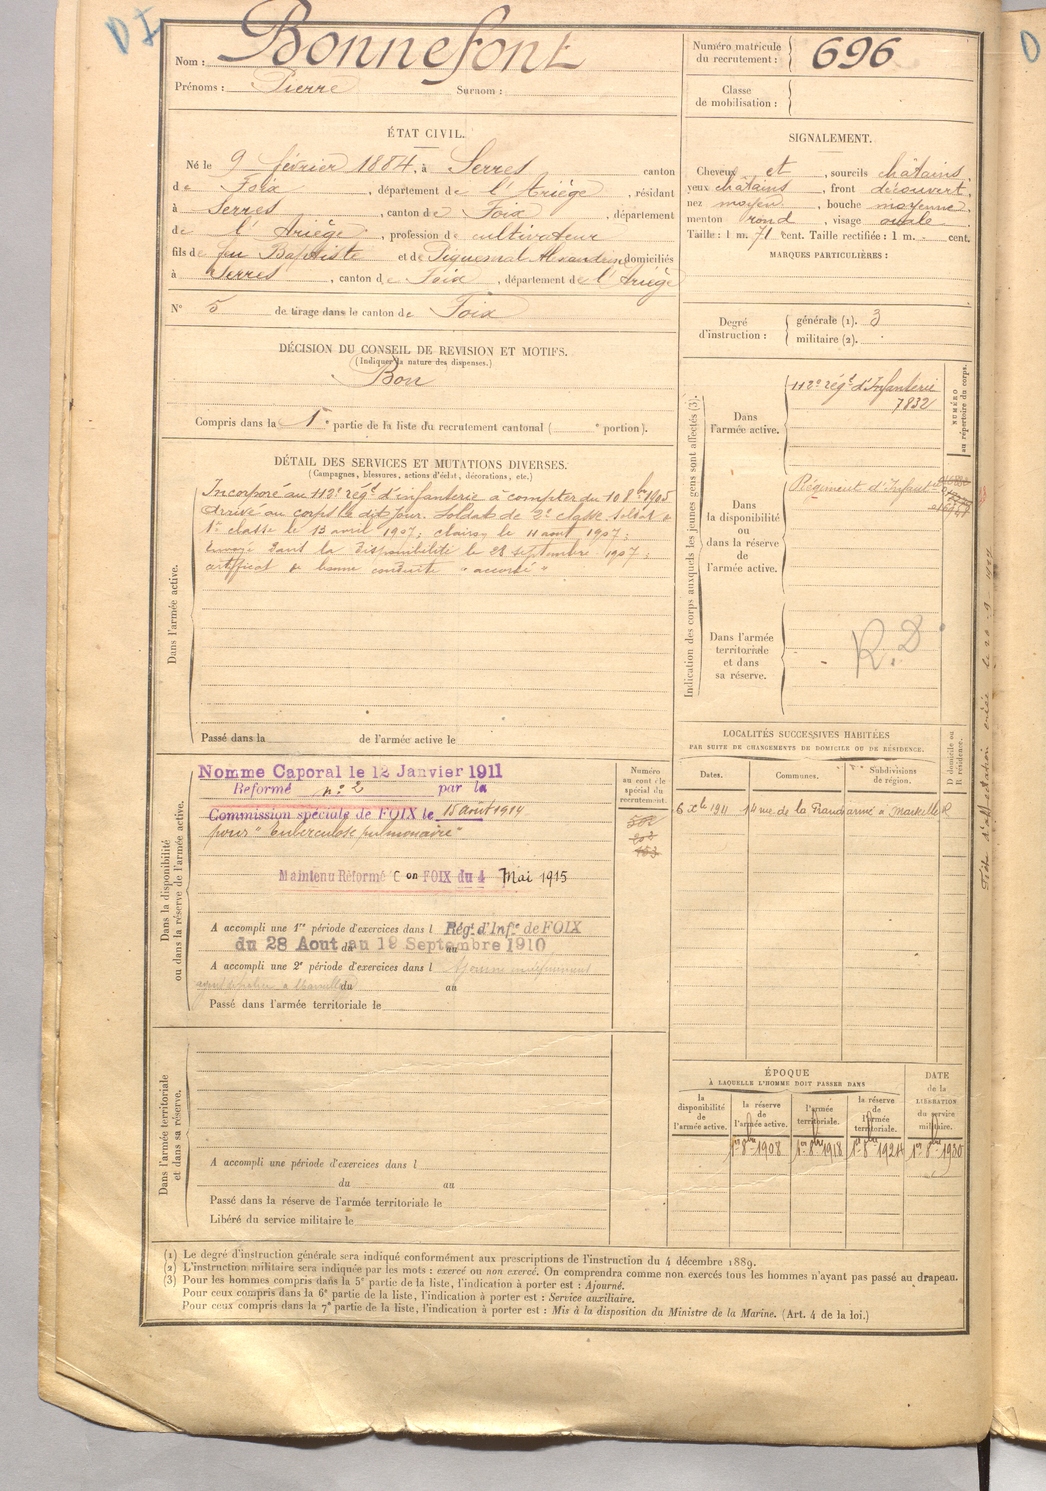 D I
Nom : Bonnefont
Prénoms : Pierre Surnom :
Numéro matricule du recrutement : 696
Classe de mobilisation :
ÉTAT CIVIL.
Né le 9 février 1884, à Serres canton
de Foix, département de l'Ariège, résidant
à Serres, canton de Foix, département
de l'Ariège, profession de cultivateur
fils de feu Baptiste et de Piquemal Alexandrine domiciliés
à Serres, canton de Foix, département de l'Ariège
N° 5 de tirage dans le canton de Foix
SIGNALEMENT.
Cheveux et, sourcils châtains,
yeux châtains, front découvert,
nez moyen, bouche moyenne,
menton rond, visage ovale.
Taille : 1 m. 71 cent. Taille rectifiée : 1 m. cent.
MARQUES PARTICULIÈRES :
Degré d'instruction : générale (1). 3
militaire (2).
DÉCISION DU CONSEIL DE REVISION ET MOTIFS.
(Indiquer la nature des dispenses.)
Bon
Compris dans la 1re partie de la liste du recrutement cantonal ( e portion).
DÉTAIL DES SERVICES ET MUTATIONS DIVERSES.
(Campagnes, blessures, actions d'éclat, décorations, etc.)
Dans l'armée active.
Incorporé au 112e régt d'infanterie à compter du 10 8bre 1905
Arrivé au corps le dit jour. Soldat de 2e classe. Soldat de
1re classe le 13 avril 1907; clairon le 11 aout 1907;
Envoyé dans la disponibilité le 28 septembre 1907;
certificat de bonne conduite "accordé"
Passé dans la de l'armée active le
Indication des corps auxquels les jeunes gens sont affectés (3).
NUMÉRO au répertoire du corps.
Dans l'armée active.
112e régt d'Infanterie
7832
Dans la disponibilité ou dans la réserve de l'armée active.
Régiment d'Infanterie
Dans l'armée territoriale et dans sa réserve.
R. D
LOCALITÉS SUCCESSIVES HABITÉES
PAR SUITE DE CHANGEMENTS DE DOMICILE OU DE RÉSIDENCE.
Dates. Communes. Subdivisions de région. D domicile ou R résidence.
6 Xbre 1911 14 rue de la à Marseille R
Dans la disponibilité ou dans la réserve de l'armée active.
Numéro au contrôle spécial du recrutement.
Nomme Caporal le 12 Janvier 1911
Réformé n° 2 par la
Commission spéciale de FOIX le 15 aout 1914
pour "tuberculose pulmonaire"
Maintenu Réformé Con FOIX du 4 Mai 1915
A accompli une 1re période d'exercices dans l Régt d'Infie de FOIX
du 28 Aout au 19 Septembre 1910
A accompli une 2e période d'exercices dans l
du au
Passé dans l'armée territoriale le
ÉPOQUE
À LAQUELLE L'HOMME DOIT PASSER DANS
la disponibilité de l'armée active. la réserve de l'armée active. l'armée territoriale. la réserve de l'armée territoriale. DATE de la LIBÉRATION du service militaire.
1er 8bre 1908 1er 8bre 1918 1er 8bre 1924 1er 8bre 1930
Dans l'armée territoriale et dans sa réserve.
A accompli une période d'exercices dans l
du au
Passé dans la réserve de l'armée territoriale le
Libéré du service militaire le
(1) Le degré d'instruction générale sera indiqué conformément aux prescriptions de l'instruction du 4 décembre 1889.
(2) L'instruction militaire sera indiquée par les mots : exercé ou non exercé. On comprendra comme non exercés tous les hommes n'ayant pas passé au drapeau.
(3) Pour les hommes compris dans la 5e partie de la liste, l'indication à porter est : Ajourné.
Pour ceux compris dans la 6e partie de la liste, l'indication à porter est : Service auxiliaire.
Pour ceux compris dans la 7e partie de la liste, l'indication à porter est : Mis à la disposition du Ministre de la Marine. (Art. 4 de la loi.)